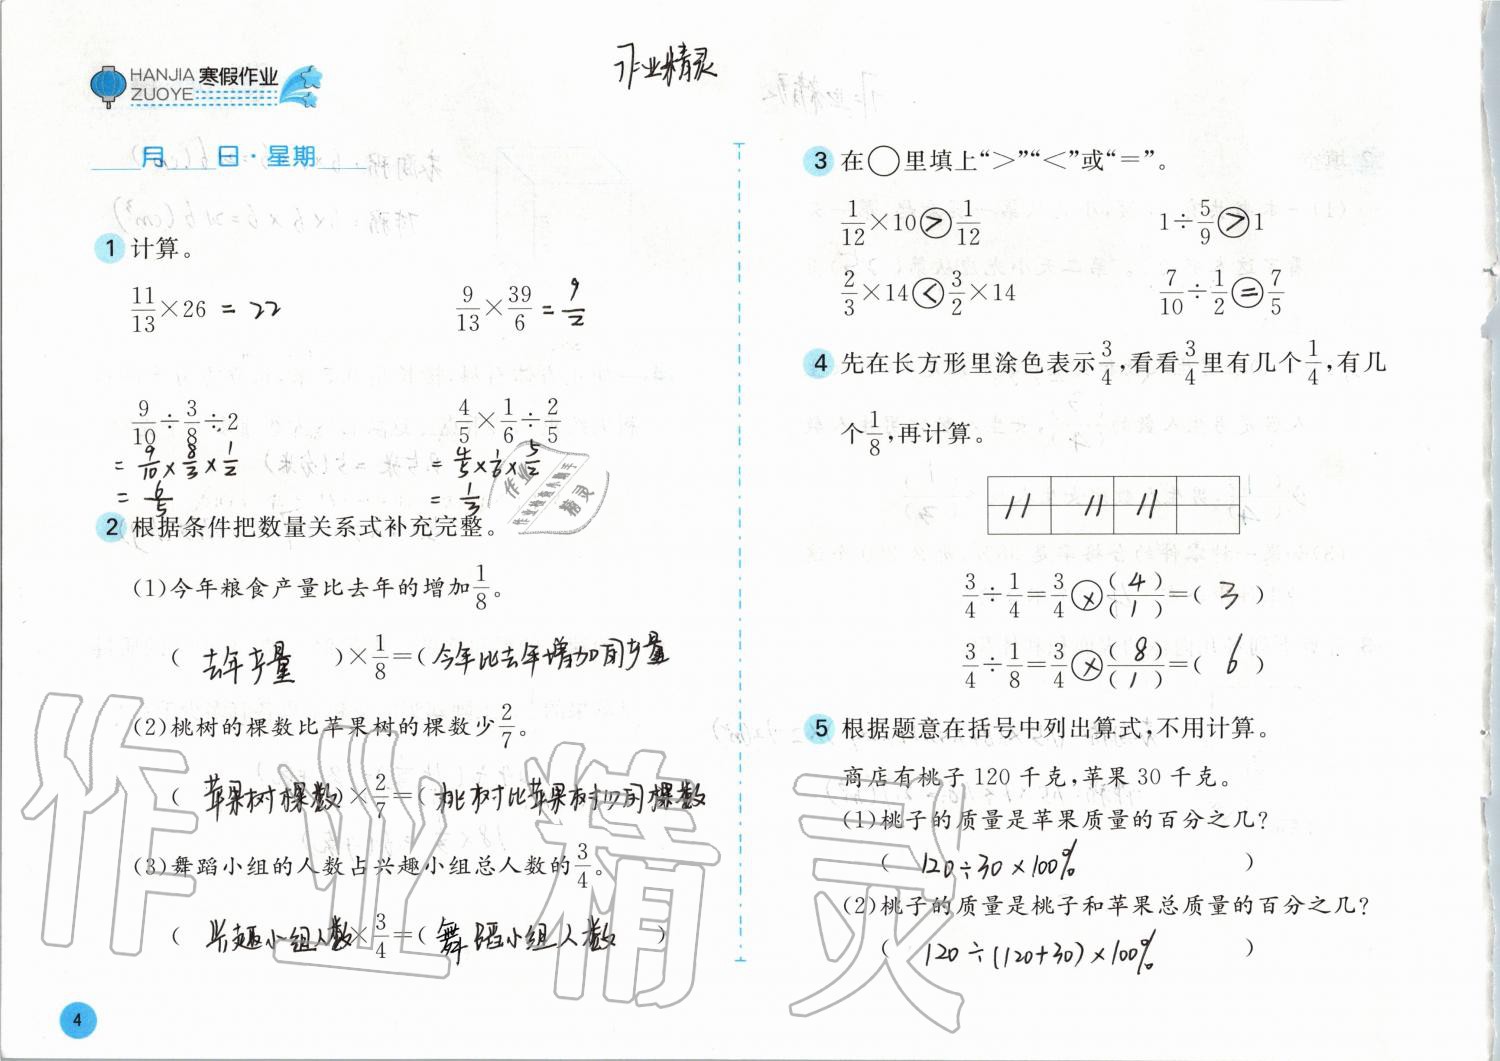 作业精灵
HANJIA 寒假作业
ZUOYE
月 日·星期
1 计算。
11/13×26 = 22 9/13×39/6 = 9/2
9/10÷3/8÷2 4/5×1/6÷2/5
= 9/10×8/3×1/2 = 4/5×1/6×5/2
= 6/5 = 1/3
2 根据条件把数量关系式补充完整。
(1)今年粮食产量比去年的增加1/8。
( 去年产量 )×1/8=( 今年比去年增加的产量
(2)桃树的棵数比苹果树的棵数少2/7。
( 苹果树棵数 )×2/7=( 桃树比苹果树少的棵数
(3)舞蹈小组的人数占兴趣小组总人数的3/4。
( 兴趣小组人数 ×3/4=( 舞蹈小组人数 )
4
3 在○里填上“>”“<”或“=”。
1/12×10 > 1/12 1÷5/9 > 1
2/3×14 < 3/2×14 7/10÷1/2 = 7/5
4 先在长方形里涂色表示3/4,看看3/4里有几个1/4,有几
个1/8,再计算。
3/4÷1/4=3/4×(4)/(1)=( 3 )
3/4÷1/8=3/4×(8)/(1)=( 6 )
5 根据题意在括号中列出算式,不用计算。
商店有桃子120千克,苹果30千克。
(1)桃子的质量是苹果质量的百分之几?
( 120÷30×100% )
(2)桃子的质量是桃子和苹果总质量的百分之几?
( 120÷(120+30)×100% )
作业精灵
作业精灵